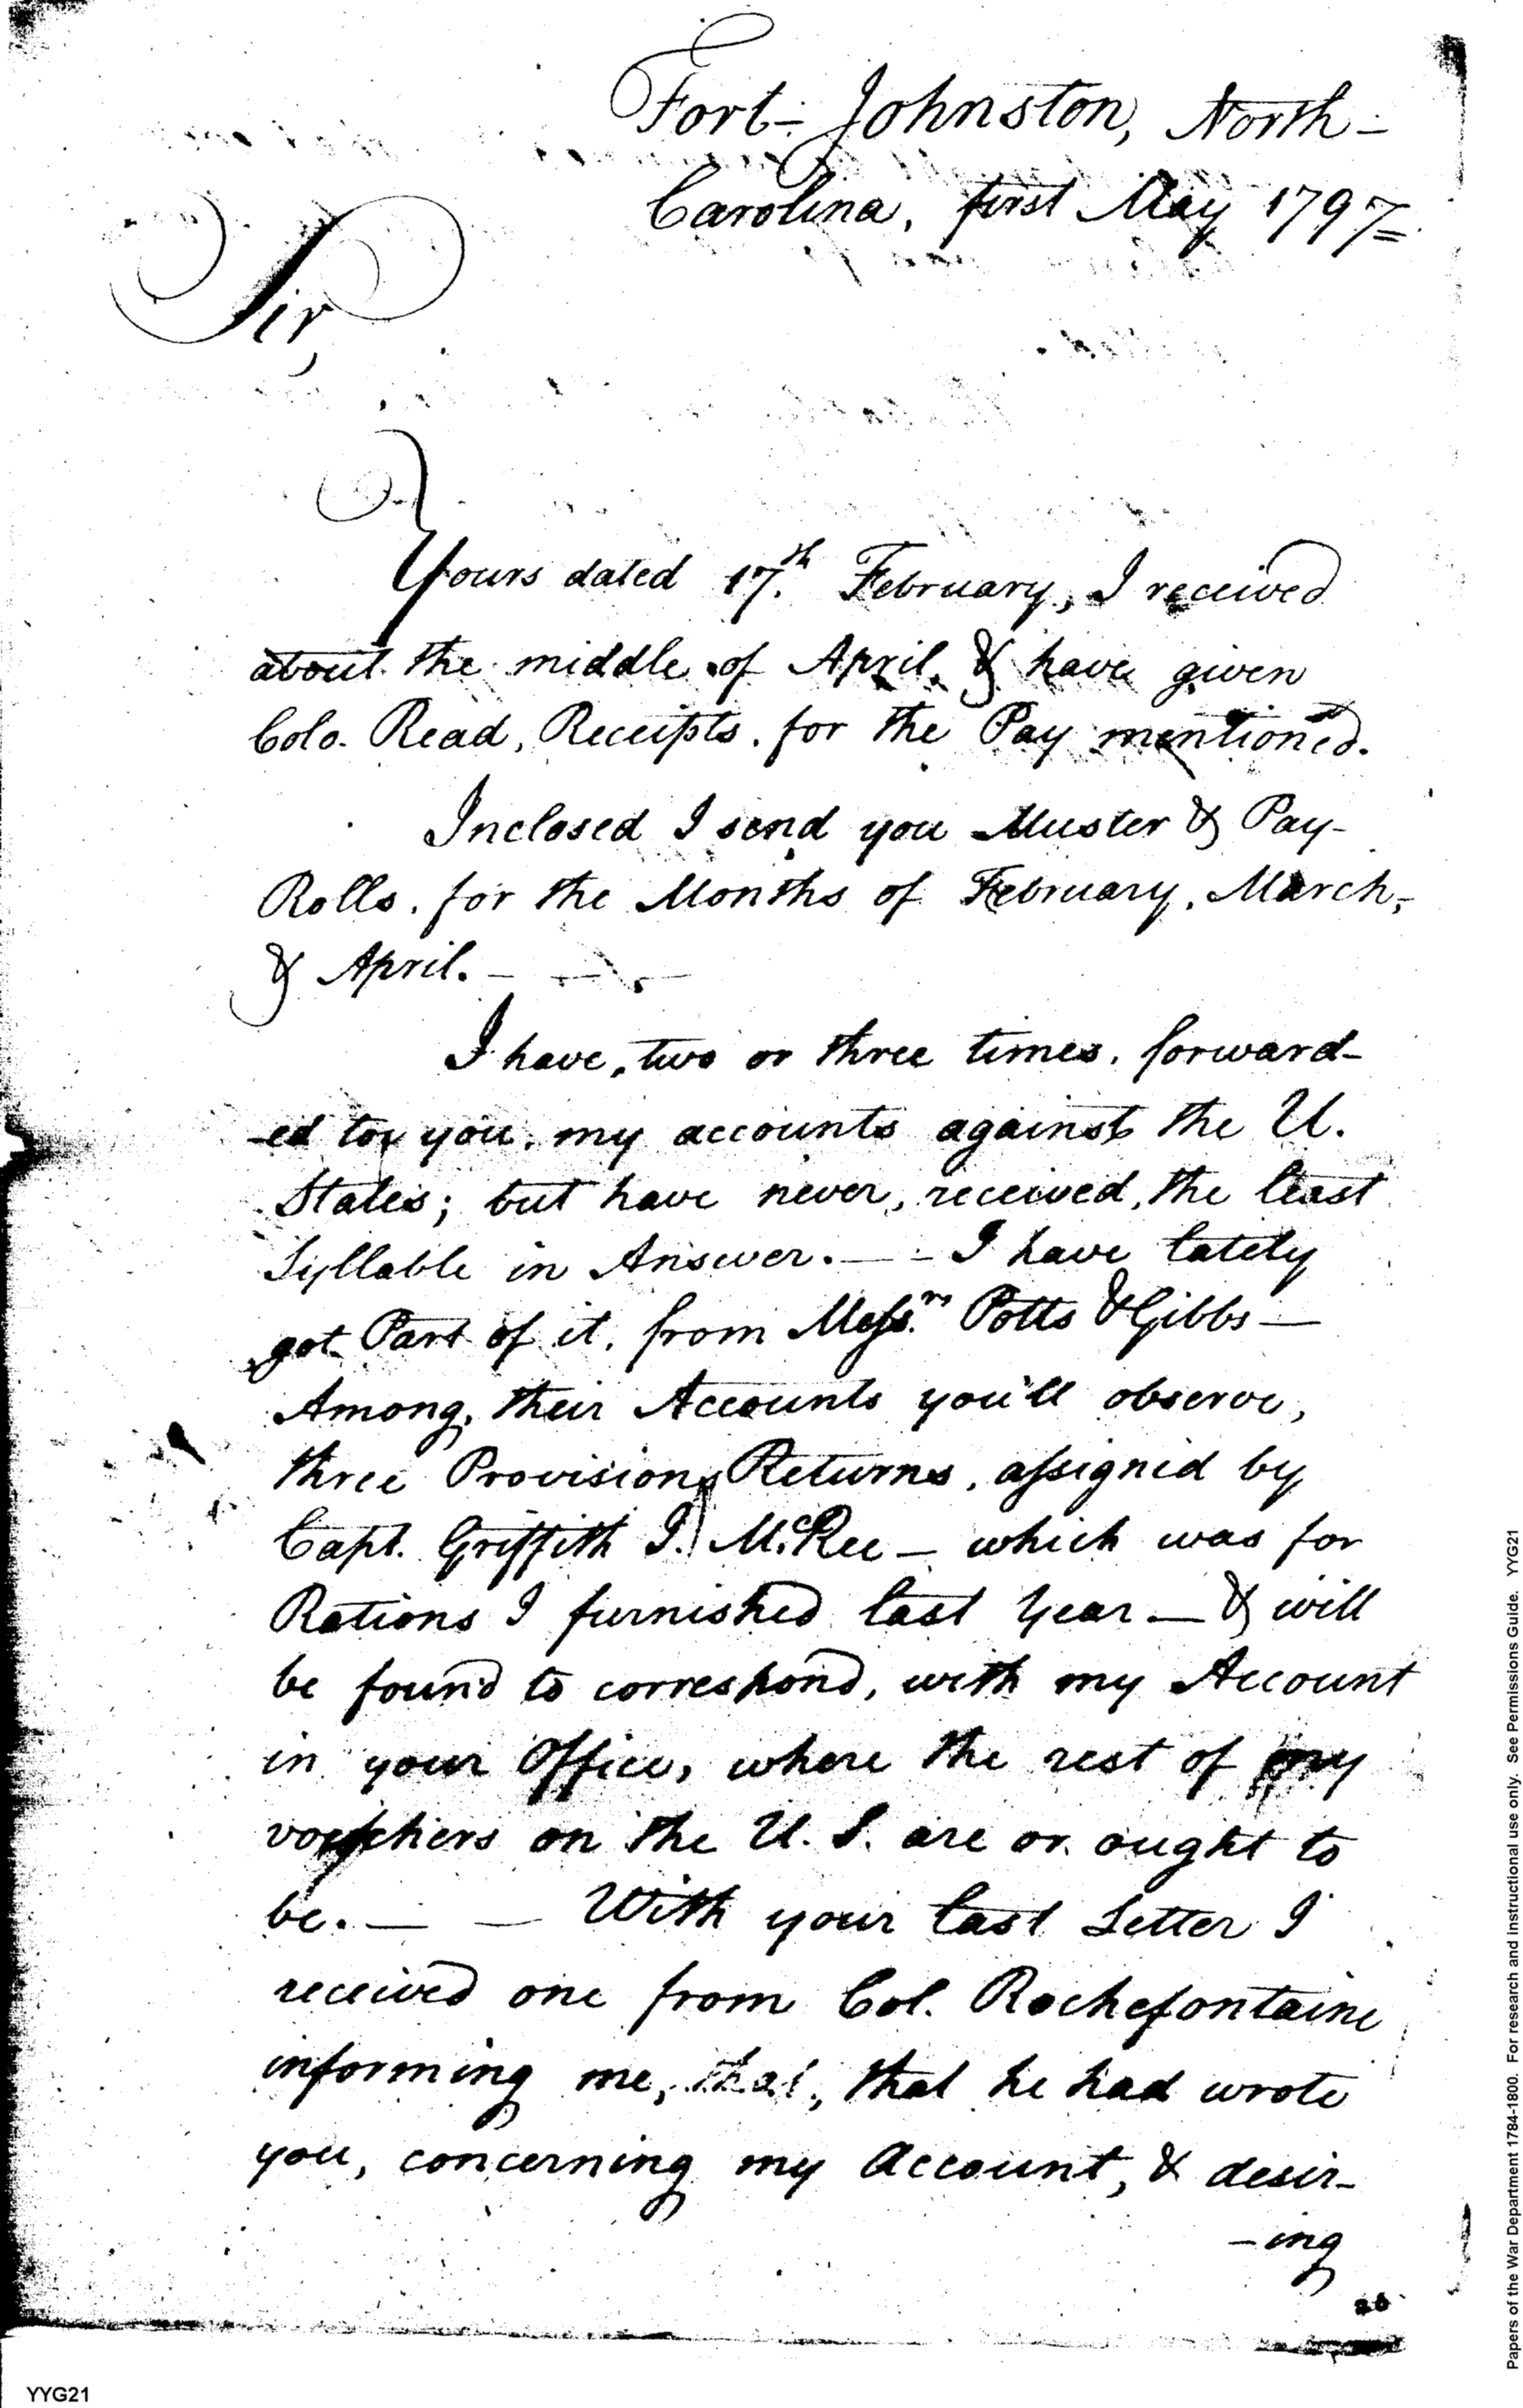 Fort-Johnston, North-
Carolina, first May 1797=
Sir,
Yours dated 17.th February, I received
about the middle of April, & have given
Colo. Read, Receipts, for the Pay mentioned.
Inclosed I send you Muster & Pay-
Rolls, for the Months of February, March,
& April. -
I have, two or three times, forward-
-ed to you, my accounts against the U.
States; but have never, received, the least
Syllable in Answer. — - I have lately
got Part of it, from Messrs. Potts & Gibbs —
Among, their Accounts you'll observe,
three Provision Returns, assigned by
Capt. Griffith J. McRee — which was for
Rations I furnished last Year — & will
be found to correspond, with my Account
in your Office, where the rest of my
vouchers on the U. S. are or ought to
be. — — With your last Letter I
received one from Col. Rochefontaine
informing me, that, that he had wrote
you, concerning my Account, & desir-
-ing
26
YYG21
Papers of the War Department 1784-1800. For research and instructional use only. See Permissions Guide. YYG21